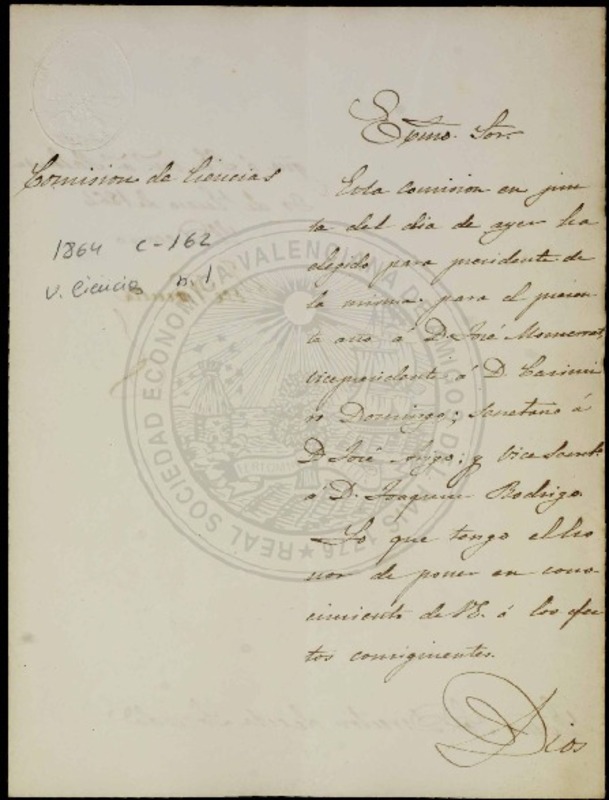 Exmo. Sor.
Comision de Ciencias
1864 C-162
V. Ciencias n. 1
Esta comision en jun
ta del dia de ayer ha
elegido para presidente de
la misma para el presen
te año á D. José Monserrat,
vicepresidente á D. Casimi
ro Domingo; Secretario á
D José Arigo; y Vice Secret.
á D. Joaquin Rodrigo.
Lo que tengo el ho
nor de poner en cono
cimiento de V.E. á los efec
tos consiguientes.
Dios
REAL SOCIEDAD ECONOMICA VALENCIANA DE AMIGOS DEL PAIS 1776